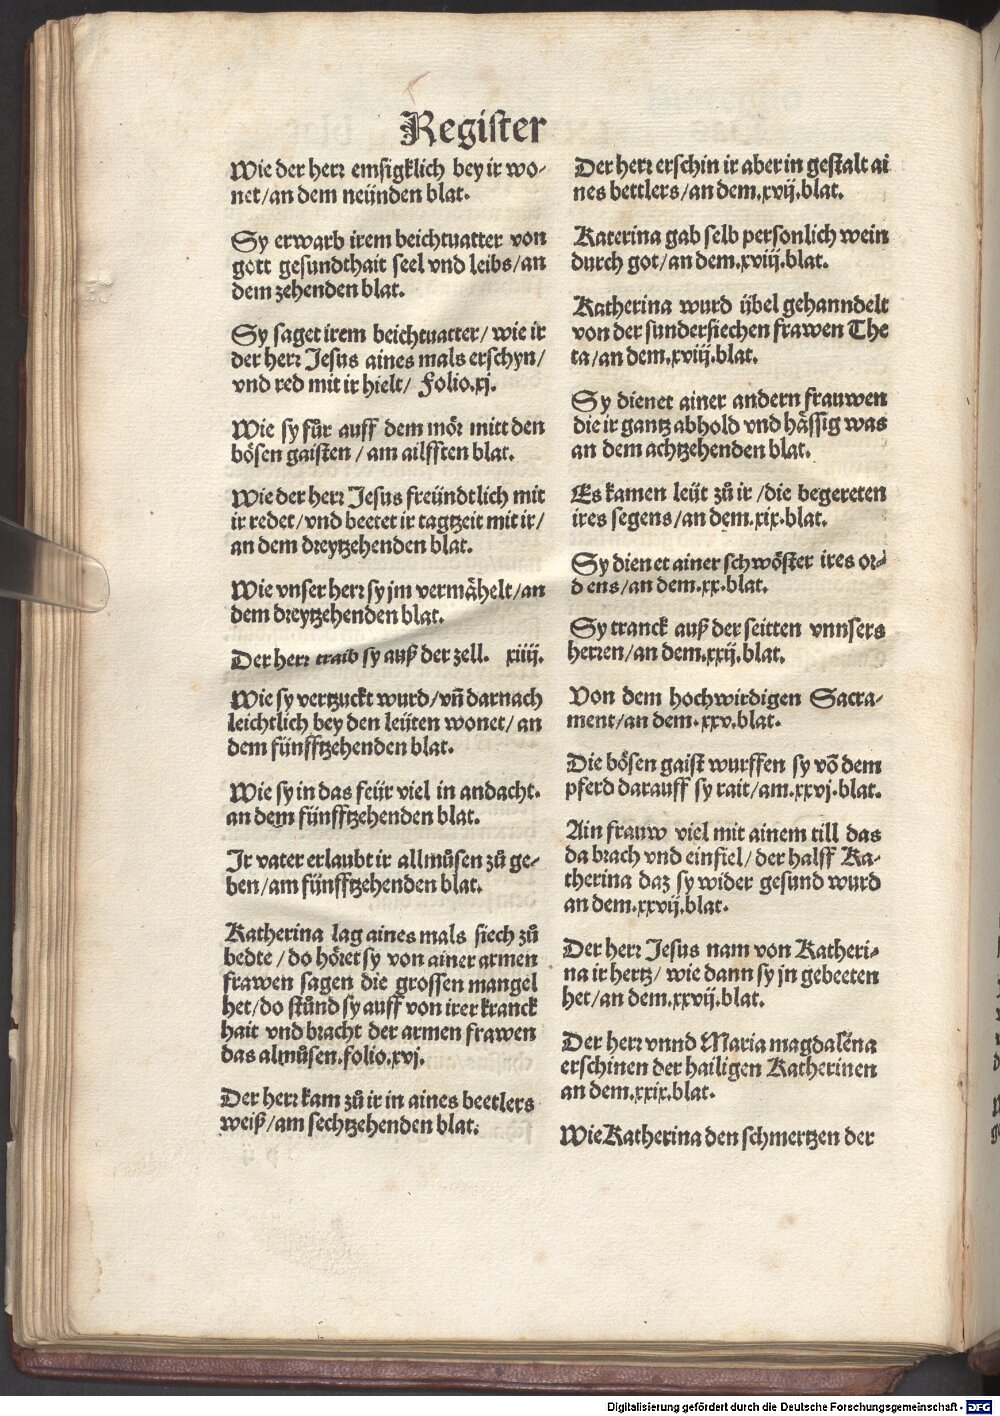 Register
Wie der herr emsigklich bey ir wo-
net/an dem neünden blat.
Sy erwarb irem beichtuatter von
gott gesundthait seel vnd leibs/an
dem zehenden blat.
Sy saget irem beichtuatter/ wie ir
der herr Jesus aines mals erschyn/
vnd red mit ir hielt/ Folio.xj.
Wie sy fůr auff dem mör mitt den
bösen gaisten / am ailfften blat.
Wie der herr Jesus freündtlich mit
ir redet/vnd beetet ir tagtzeit mit ir/
an dem dreytzehenden blat.
Wie vnser herr sy jm vermähelt/an
dem dreytzehenden blat.
Der herr traib sy auß der zell. xiiij.
Wie sy vertzuckt wurd/vn̄ darnach
leichtlich bey den leüten wonet/ an
dem fünfftzehenden blat.
Wie sy in das feür viel in andacht.
an dem fünfftzehenden blat.
Jr vater erlaubt ir allmůsen zů ge-
ben/am fünfftzehenden blat.
Katherina lag aines mals siech zů
bedte / do höret sy von ainer armen
frawen sagen die grossen mangel
het/do stůnd sy auff von irer kranck
hait vnd bracht der armen frawen
das almůsen.folio.xvj.
Der herr kam zů ir in aines beetlers
weiß/am sechtzehenden blat.
Der herr erschin ir aber in gestalt ai
nes bettlers/an dem.xvij.blat.
Katerina gab selb personlich wein
durch got/an dem.xviij.blat.
Katherina wurd übel gehanndelt
von der sundersiechen frawen The
ta/an dem.xviij.blat.
Sy dienet ainer andern frauwen
die ir gantz abhold vnd hässig was
an dem achtzehenden blat.
Es kamen leüt zů ir /die begereten
ires segens/an dem.xix.blat.
Sy dienet ainer schwöster ires or-
dens/an dem.xx.blat.
Sy tranck auß der seitten vnnsers
herren/an dem.xxij.blat.
Von dem hochwirdigen Sacra-
ment/an dem.xxv.blat.
Die bösen gaist wurffen sy vō dem
pferd darauff sy rait/am.xxvj.blat.
Ain frauw viel mit ainem till das
da brach vnd einfiel/ der halff Ka-
therina daz sy wider gesund wurd
an dem.xxvij.blat.
Der herr Jesus nam von Katheri-
na ir hertz/ wie dann sy jn gebeeten
het/an dem.xxvij.blat.
Der herr vnnd Maria magdaléna
erschinen der hailigen Katherinen
an dem.xxix.blat.
Wie Katherina den schmertzen der
Digitalisierung gefördert durch die Deutsche Forschungsgemeinschaft - DFG